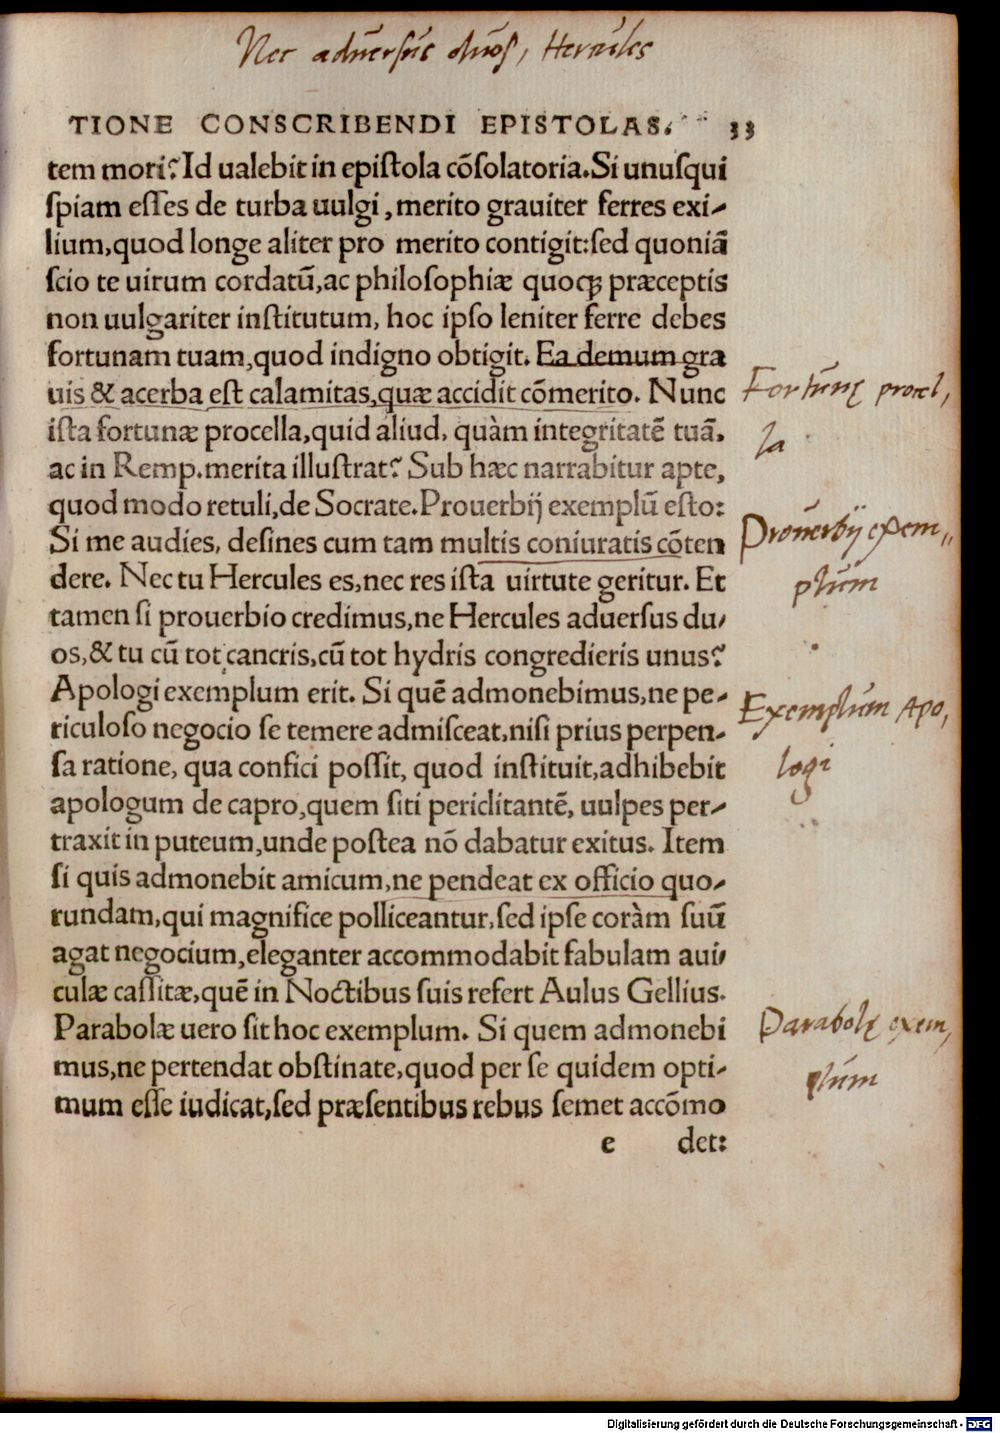 Nec aduersus duos, Hercules
TIONE CONSCRIBENDI EPISTOLAS. 33
tem mori? Id ualebit in epiſtola cõſolatoria. Si unuſqui
ſpiam eſſes de turba uulgi, merito grauiter ferres exi-
lium, quod longe aliter pro merito contigit: ſed quoniã
ſcio te uirum cordatũ, ac philoſophiæ quoqꝫ præceptis
non uulgariter inſtitutum, hoc ipſo leniter ferre debes
fortunam tuam, quod indigno obtigit. Ea demum gra
uis & acerba eſt calamitas, quæ accidit cõmerito. Nunc
iſta fortunæ procella, quid aliud, quàm integritatẽ tuã,
ac in Remp. merita illuſtrat? Sub hæc narrabitur apte,
quod modo retuli, de Socrate. Prouerbij exemplũ eſto:
Si me audies, deſines cum tam multis coniuratis cõten
dere. Nec tu Hercules es, nec res iſta uirtute geritur. Et
tamen ſi prouerbio credimus, ne Hercules aduerſus du-
os, & tu cũ tot cancris, cũ tot hydris congredieris unus?
Apologi exemplum erit. Si quẽ admonebimus, ne pe-
riculoſo negocio ſe temere admiſceat, niſi prius perpen-
ſa ratione, qua confici poſſit, quod inſtituit, adhibebit
apologum de capro, quem ſiti periclitantẽ, uulpes per-
traxit in puteum, unde poſtea nõ dabatur exitus. Item
ſi quis admonebit amicum, ne pendeat ex officio quo-
rundam, qui magnifice polliceantur, ſed ipſe coràm ſuũ
agat negocium, eleganter accommodabit fabulam aui-
culæ caſſitæ, quẽ in Noctibus ſuis refert Aulus Gellius.
Parabolæ uero ſit hoc exemplum. Si quem admonebi
mus, ne pertendat obſtinate, quod per ſe quidem opti-
mum eſſe iudicat, ſed præſentibus rebus ſemet accõmo
e det:
Fortunę procel,
la
Prouerbij exem,,
plum
Exemplum Apo,
logi
Parabolę exem,
plum
Digitalisierung gefördert durch die Deutsche Forschungsgemeinschaft - DFG